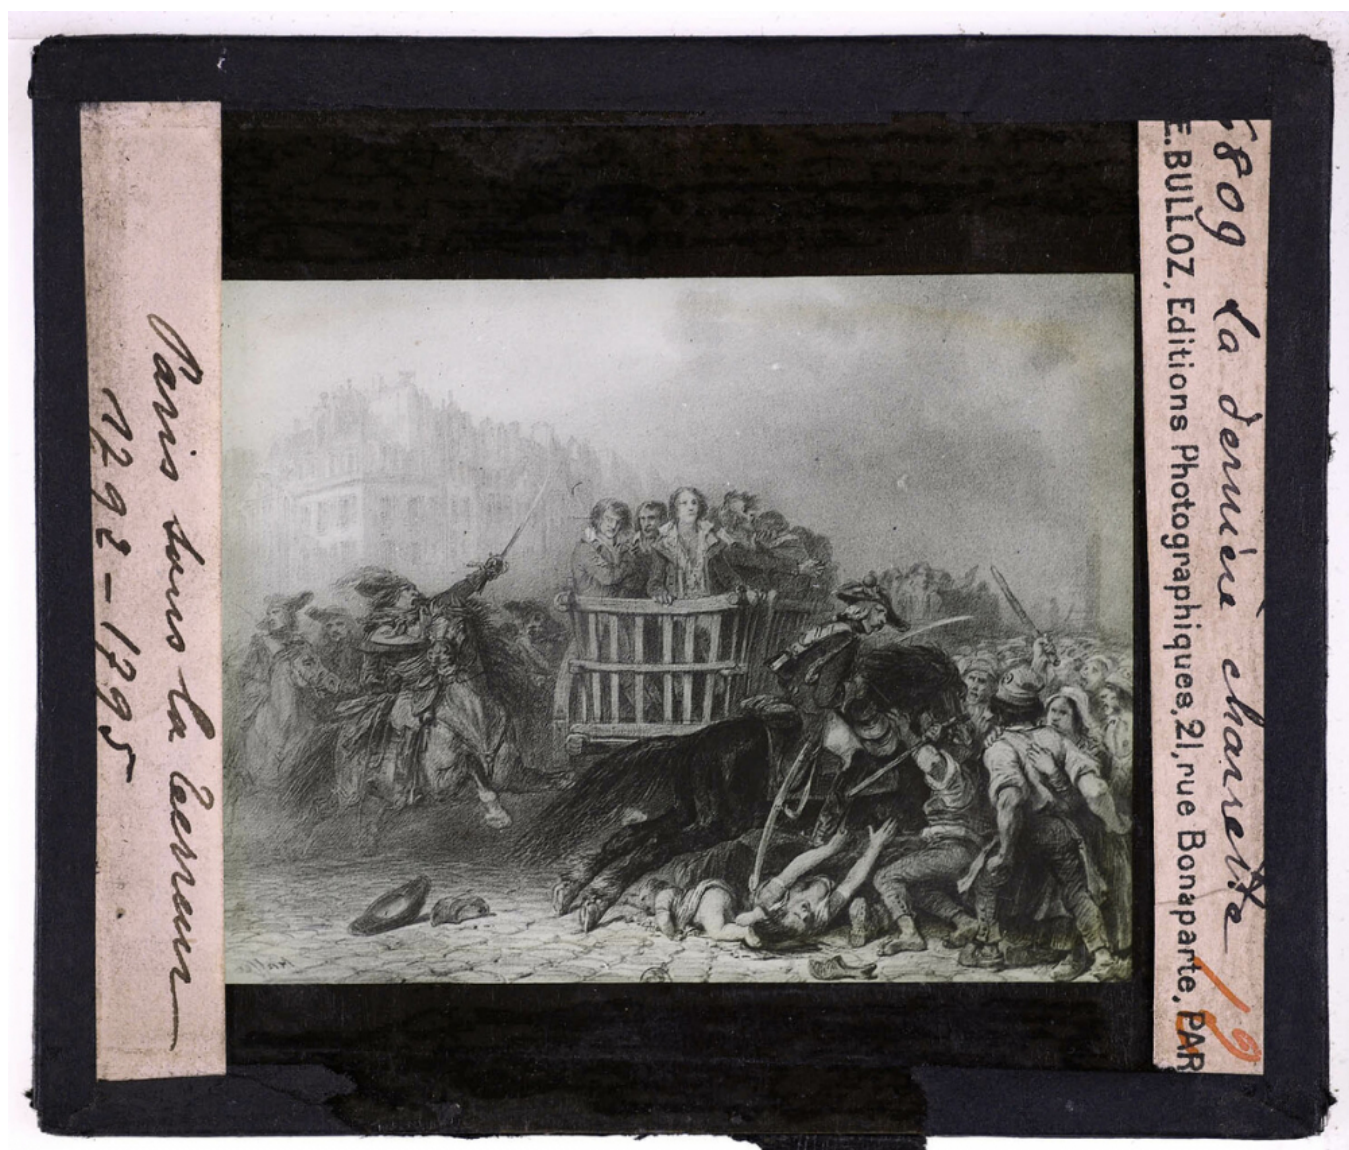 Paris sous la Terreur
1792-1795
6809 La dernière charrette
E.BULLOZ, Editions Photographiques, 21, rue Bonaparte, PAR
19